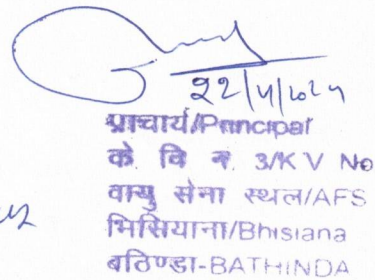 22/4/2024
प्राचार्य/Principal
के वि न. 3/K V No
वायु सेना स्थल/AFS
भिसियाना/Bhisiana
बठिण्डा-BATHINDA